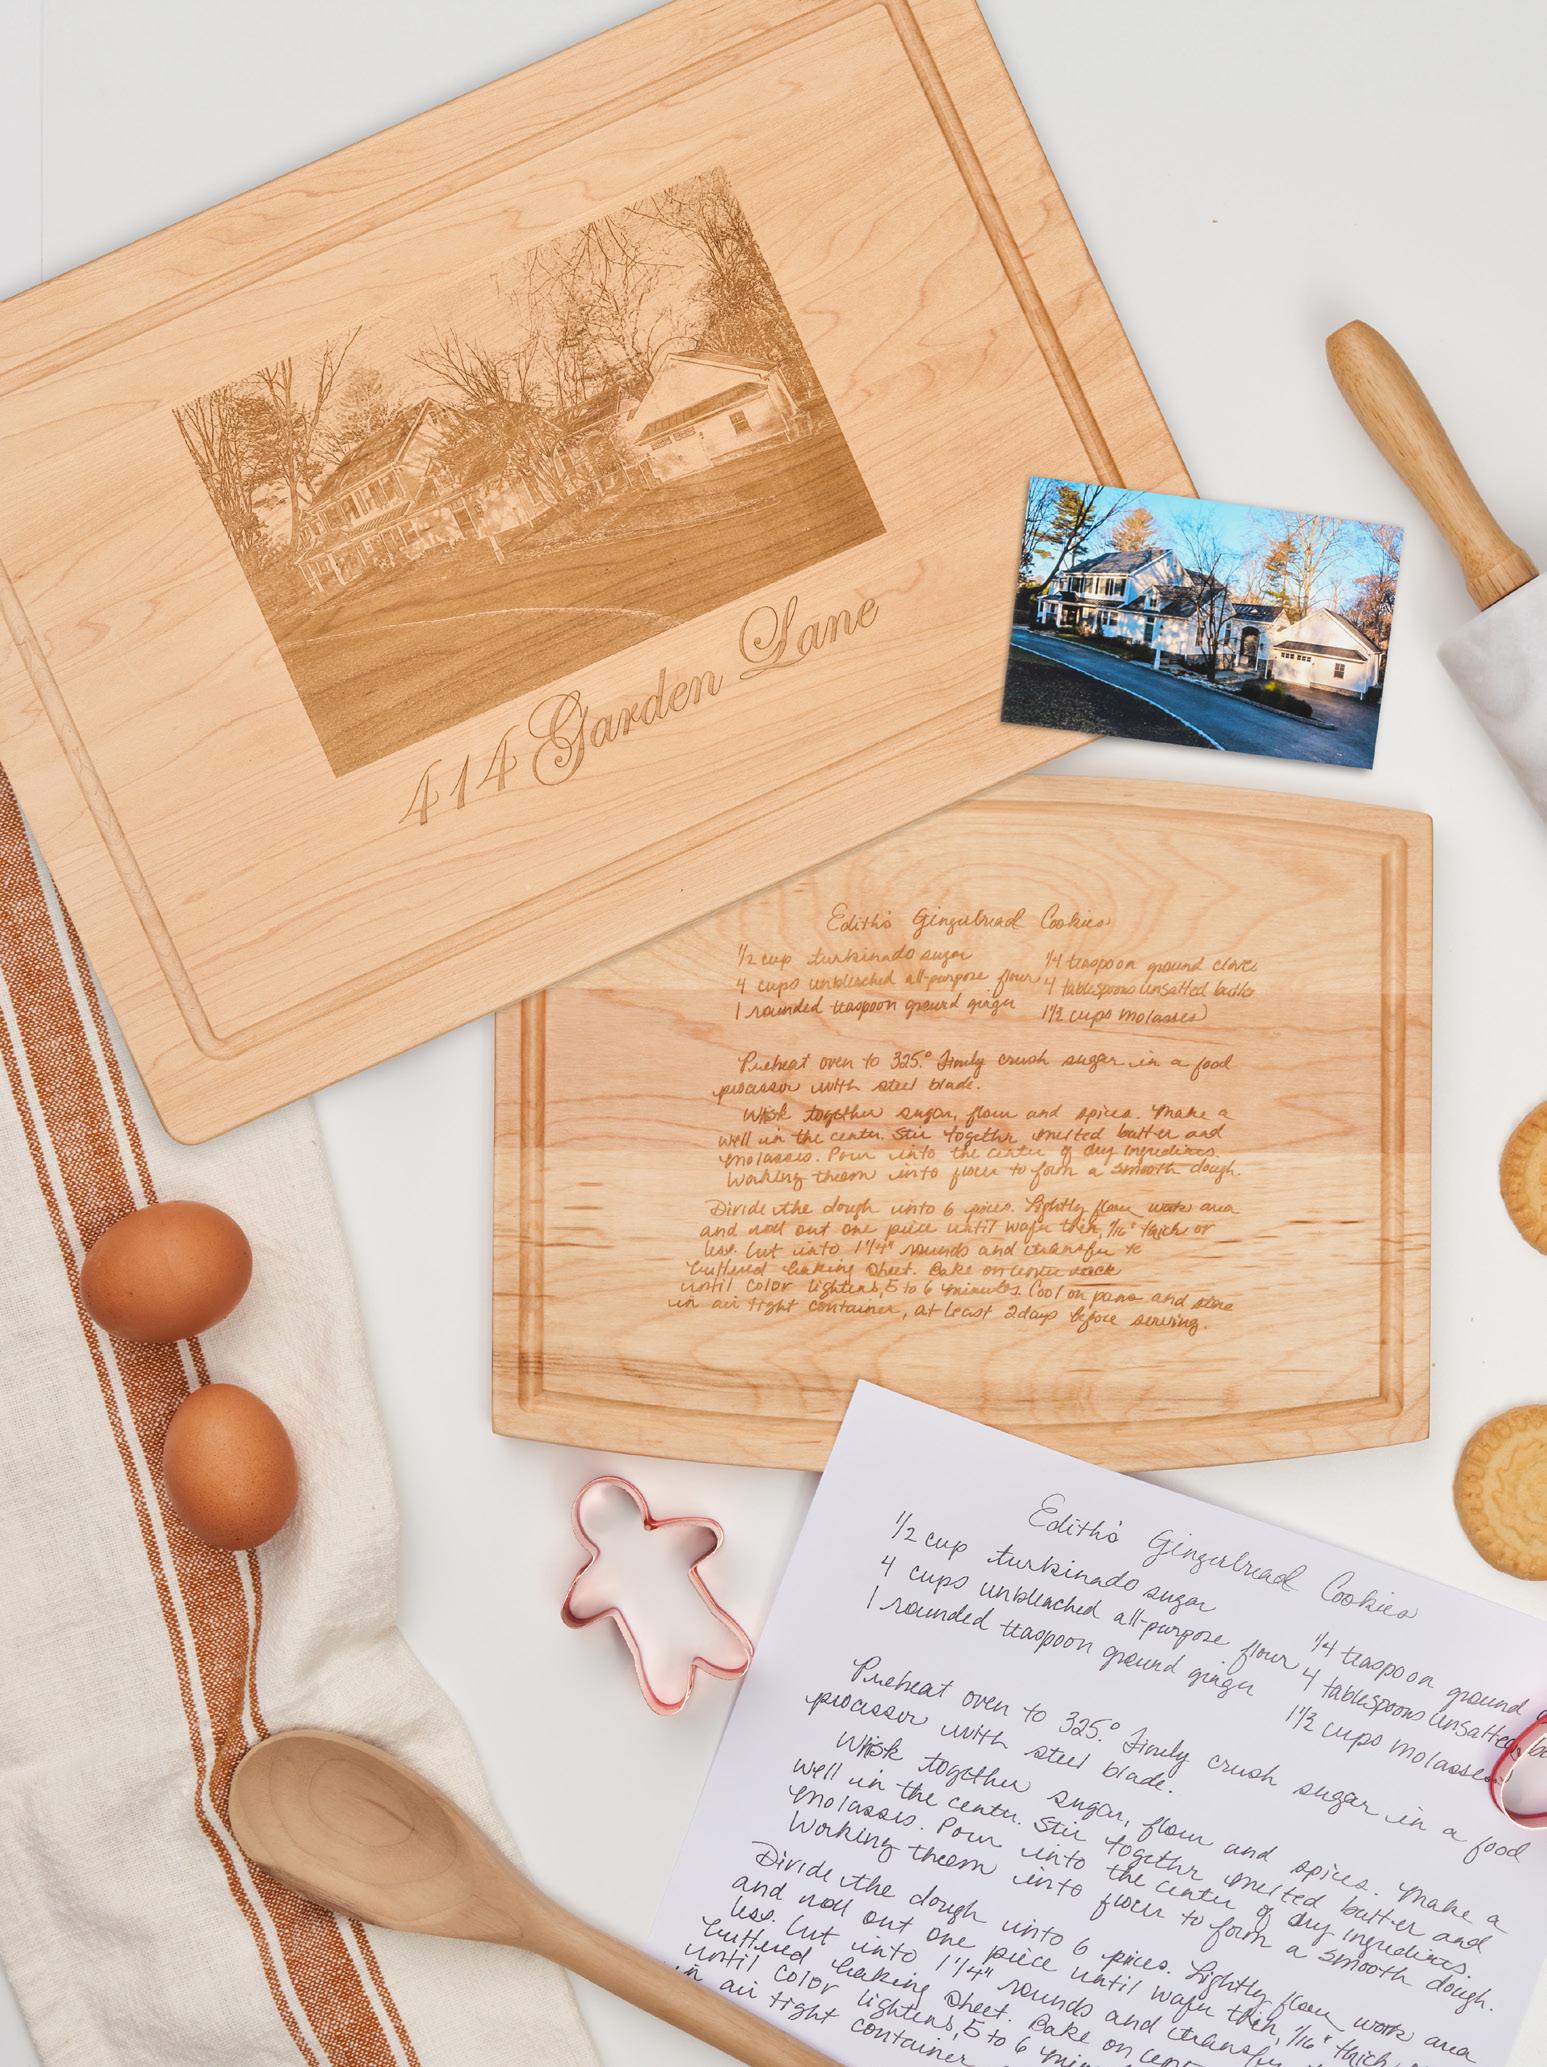 414 Garden Lane
Edith's Gingerbread Cookies
1/2 cup turbinado sugar
4 cups unbleached all-purpose flour
1 rounded teaspoon ground ginger
1/4 teaspoon ground cloves
4 tablespoons unsalted butter
1 1/2 cups molasses
Preheat oven to 325.° Finely crush sugar in a food
processor with steel blade.
Whisk together sugar, flour and spices. Make a
well in the center. Stir together melted butter and
molasses. Pour into the center of dry ingredients.
Working them into flour to form a smooth dough.
Divide the dough into 6 pieces. Lightly flour work area
and roll out one piece until wafer thin, 1/16" thick or
less. Cut into 1 1/4" rounds and transfer to
buttered baking sheet. Bake on center rack
until color lightens, 5 to 6 minutes. Cool on pans and store
in air tight container, at least 2 days before serving.
Edith's Gingerbread Cookies
1/2 cup turbinado sugar
4 cups unbleached all-purpose flour
1 rounded teaspoon ground ginger
1/4 teaspoon ground
4 tablespoons unsalted
1 1/2 cups molasses
Preheat oven to 325.° Finely crush sugar in a food
processor with steel blade.
Whisk together sugar, flour and spices. Make a
well in the center. Stir together melted butter and
molasses. Pour into the center of dry ingredients.
Working them into flour to form a smooth dough.
Divide the dough into 6 pieces. Lightly flour work area
and roll out one piece until wafer thin, 1/16" thick
less. Cut into 1 1/4" rounds and transfer
buttered baking sheet. Bake on
until color lightens, 5 to 6
in air tight container